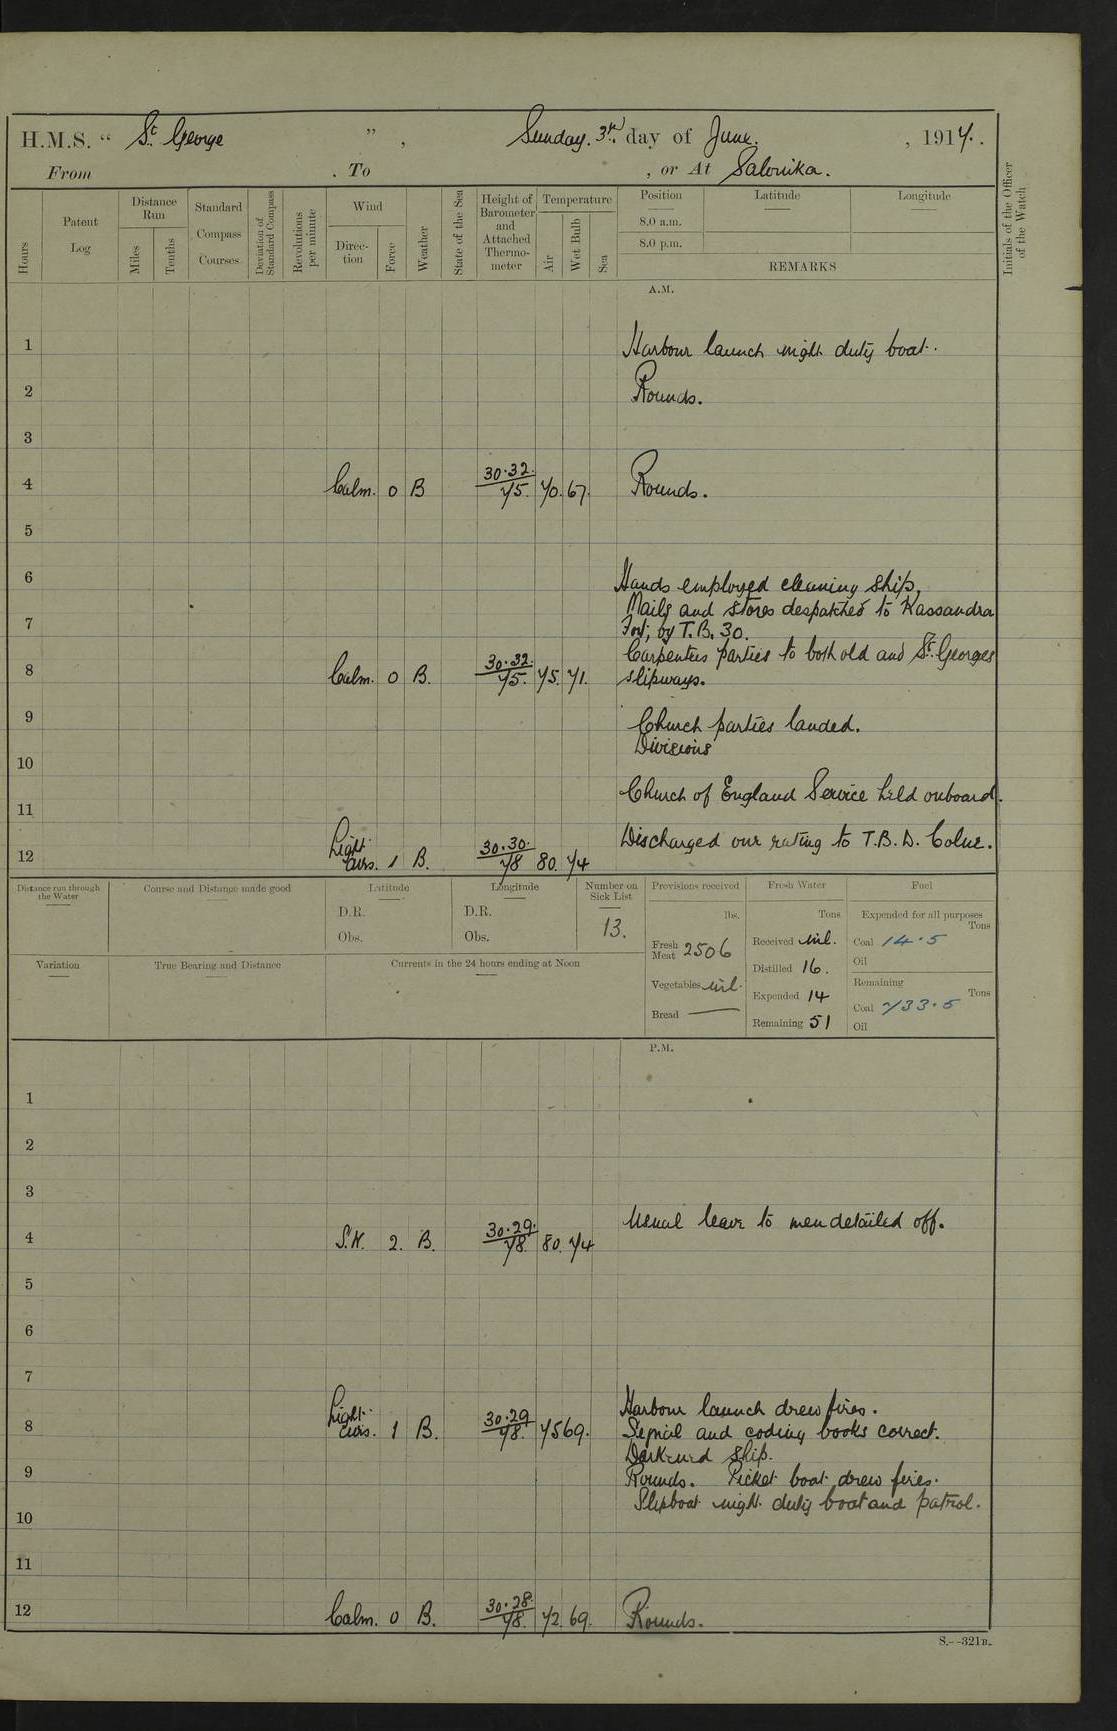 H.M.S. " St George ", Sunday. 3rd day of June. , 1917.
From . To , or At Salonika.
Hours
Patent Log
Distance Run
Miles
Tenths
Standard Compass Courses
Deviation of Standard Compass
Revolutions per minute
Wind
Direction
Force
Weather
State of the Sea
Height of Barometer and Attached Thermometer
Temperature
Air
Wet Bulb
Sea
Position
Latitude
Longitude
8.0 a.m.
8.0 p.m.
REMARKS
Initials of the Officer of the Watch
A.M.
1 Harbour launch night duty boat.
2 Rounds.
3
4 Calm. 0 B 30.32. 75. 70. 67. Rounds.
5
6 Hands employed cleaning ship,
Mails and stores despatched to Kassandra
7 by T.B. 30.
Carpenters parties to both old and St. Georges
8 Calm. 0 B. 30.32. 75. 75. 71. slipways.
9 Church parties landed.
Divisions
10
Church of England Service held onboard.
11
12 Light airs. 1 B. 30.30. 78 80. 74 Discharged one rating to T.B.D. Colne.
Distance run through the Water
Course and Distance made good
Latitude
D.R.
Obs.
Longitude
D.R.
Obs.
Number on Sick List
13.
Provisions received
lbs.
Fresh Meat 2506
Vegetables nil.
Bread
Fresh Water
Tons
Received nil.
Distilled 16.
Expended 14
Remaining 51
Fuel
Expended for all purposes
Tons
Coal 14.5
Oil
Remaining
Tons
Coal 733.5
Oil
Variation
True Bearing and Distance
Currents in the 24 hours ending at Noon
P.M.
1
2
3
Usual leave to men detailed off.
4 S.W. 2. B. 30.29. 78. 80. 74
5
6
7
Harbour launch drew fires.
8 Light airs. 1 B. 30.29 78. 75 69. Signal and coding books correct.
Darkened ship.
9 Rounds. Picket boat drew fires.
Slipboat night duty boat and patrol.
10
11
12 Calm. 0 B. 30.28. 78. 72. 69. Rounds.
S.--321B.